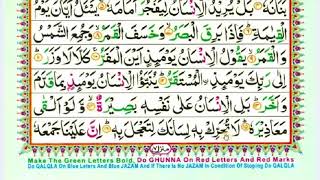 بَنَانَهُ ۝ بَلْ يُرِيدُ الْاِنْسَانُ لِيَفْجُرَ اَمَامَهُ ۝ يَسْـَٔلُ اَيَّانَ يَوْمُ
الْقِيٰمَةِ ۝ فَاِذَا بَرِقَ الْبَصَرُ ۝ وَخَسَفَ الْقَمَرُ ۝ وَجُمِعَ الشَّمْسُ
وَالْقَمَرُ ۝ يَقُوْلُ الْاِنْسَانُ يَوْمَىِٕذٍ اَيْنَ الْمَفَرُّ ۝ كَلَّا لَا وَزَرَ ۝
اِلٰى رَبِّكَ يَوْمَىِٕذِ الْمُسْتَقَرُّ ۝ يُنَبَّؤُا الْاِنْسَانُ يَوْمَىِٕذٍ بِمَا قَدَّمَ
وَاَخَّرَ ۝ بَلِ الْاِنْسَانُ عَلٰى نَفْسِهٖ بَصِيْرَةٌ ۝ وَّلَوْ اَلْقٰى
مَعَاذِيْرَهٗ ۝ لَا تُحَرِّكْ بِهٖ لِسَانَكَ لِتَعْجَلَ بِهٖ ۝ اِنَّ عَلَيْنَا جَمْعَهٗ
Make The Green Letters Bold, Do GHUNNA On Red Letters And Red Marks
Do QALQLA On Blue Leters And Blue JAZAM And If There Is No JAZAM In Condition Of Stoping Do QALQLA